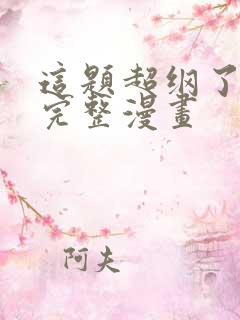 這題超纲了
完整漫畫
阿夫